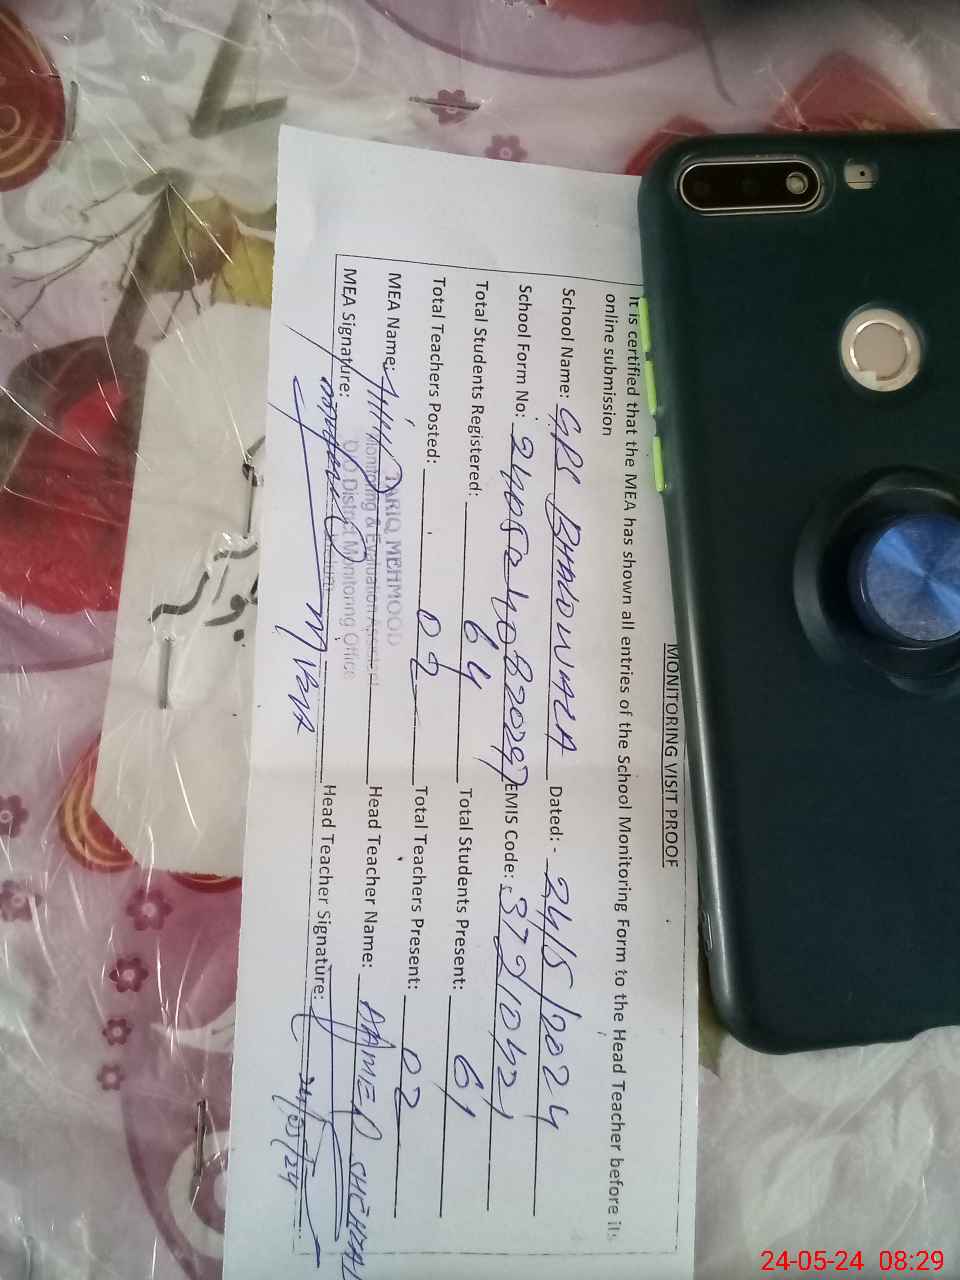 MONITORING VISIT PROOF
It is certified that the MEA has shown all entries of the School Monitoring Form to the Head Teacher before its
online submission
School Name: GPS BHADUWALA Dated: - 24/5/2024
School Form No: EMIS Code: 37210421
Total Students Registered: 64 Total Students Present: 61
Total Teachers Posted: 02 Total Teachers Present: 02
MEA Name: TARIQ MEHMOOD Head Teacher Name: AAMER
Monitoring & Evaluation Assistant
O/O District Monitoring Office
MEA Signature: Head Teacher Signature:
24/05/24
24-05-24 08:29